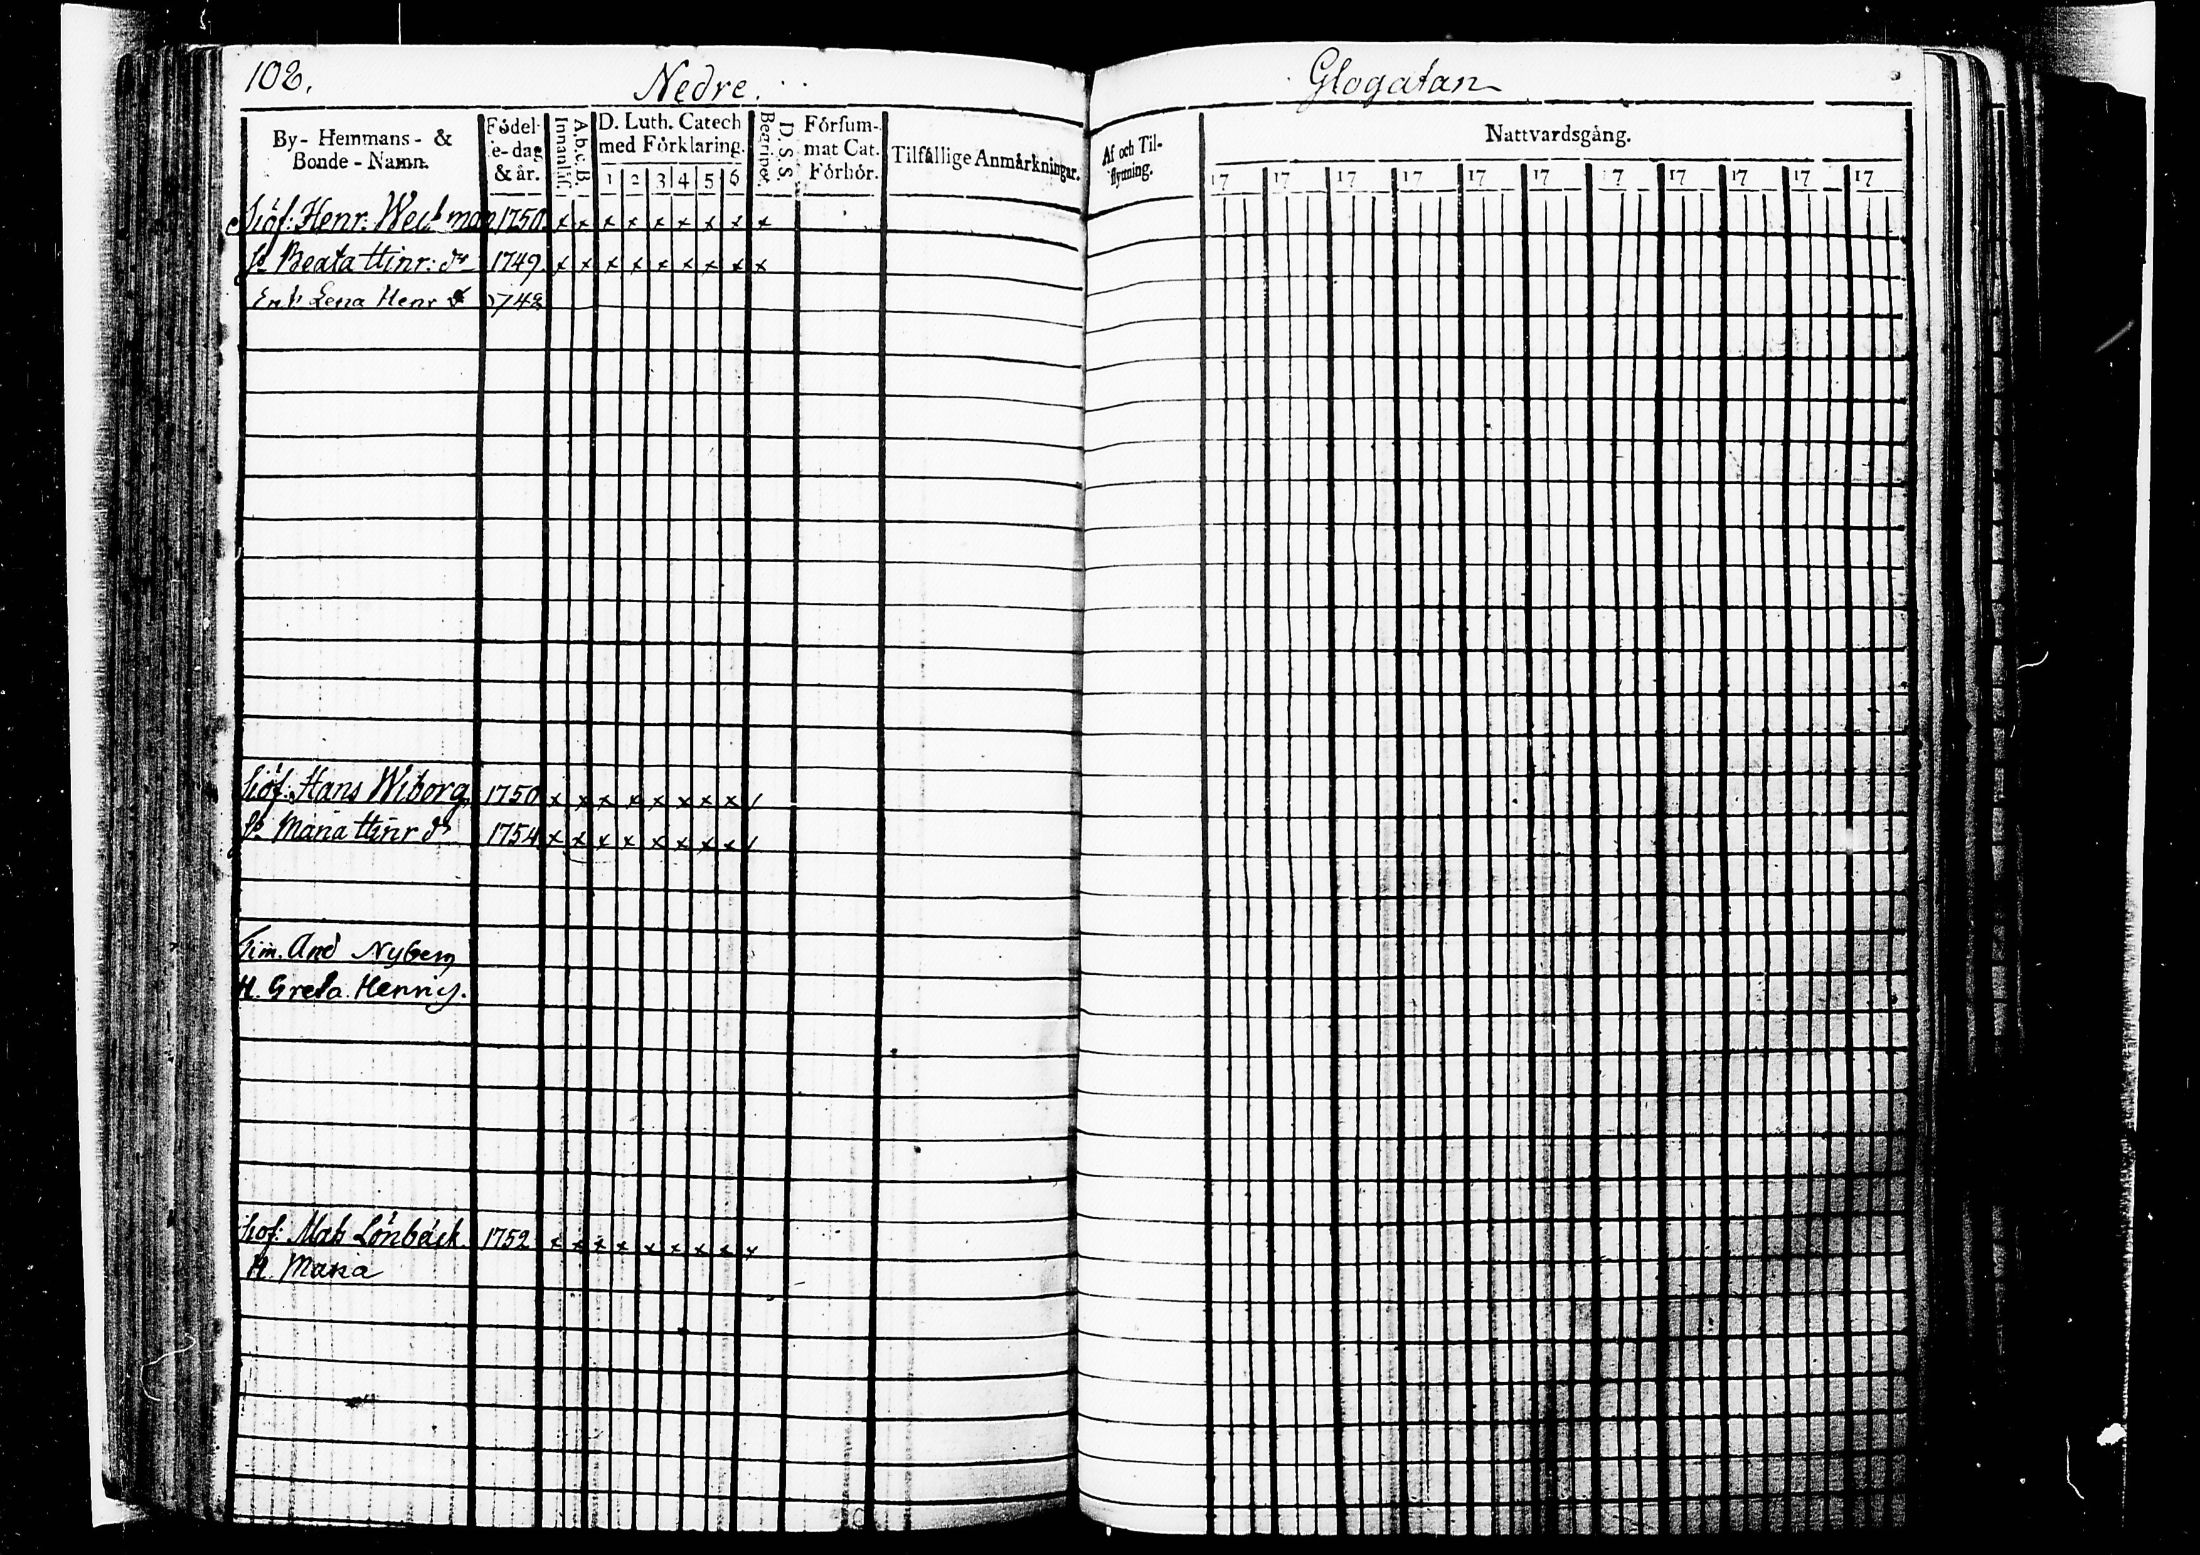 102.
Nedre.
Glogatan
By- Hemmans- &
Bonde-Namn.
Födel-
e-dag
& år.
Innanläs.
A.b.c.B.
D. Luth. Catech
med Förklaring.
1 2 3 4 5 6
Begripet.
D.S.S.
Försum-
mat Cat.
Förhör.
Tilfällige Anmärkningar.
Af och Til-
flyttning.
Nattvardsgång.
17 17 17 17 17 17 17 17 17 17 17
Siöf: Henr. Weckman 1750 x x x x x x x x x
H. Beata Hinr: dr 1749. x x x x x x x x x
Enk. Lena Henr dr 1742
Siöf: Hans Wiborg 1750 x x x x x x x x /
H. Maria Hinr dr 1754 x x x x x x x x /
Tim. And Nyberg
H. Greta Henrics.
Siöf: Mats Lönbäck 1752 x x x x x x x x x
H. Maria